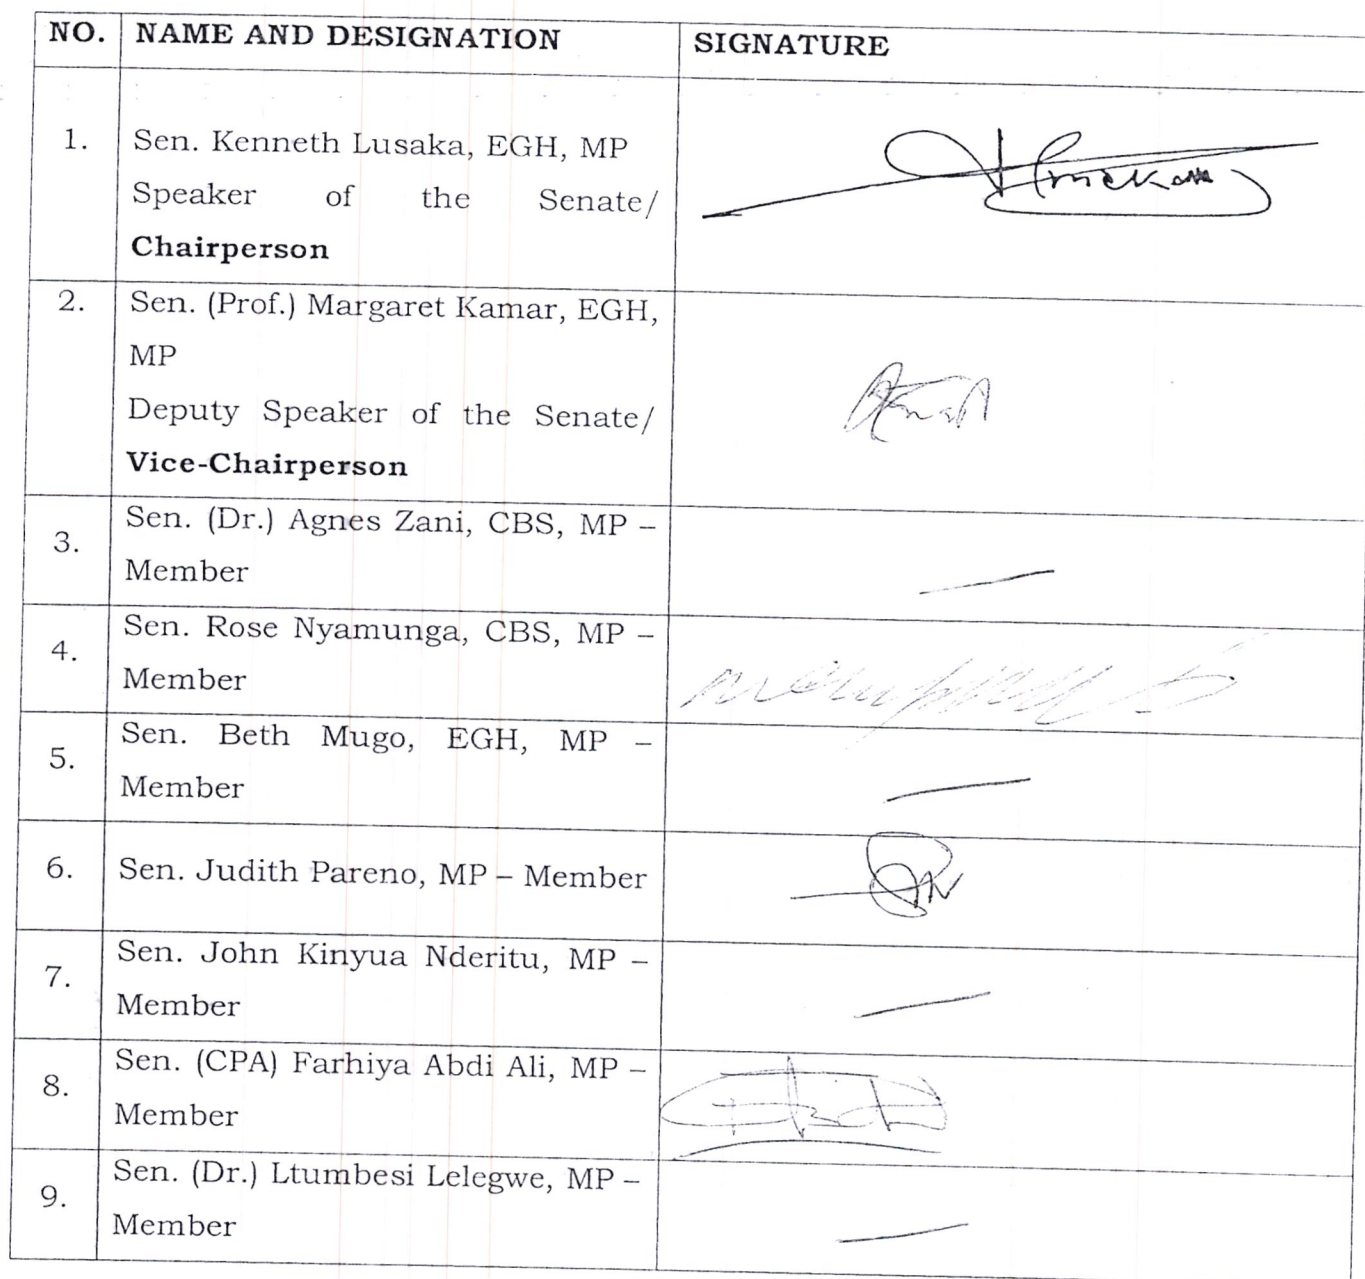 NO. NAME AND DESIGNATION SIGNATURE
1. Sen. Kenneth Lusaka, EGH, MP
Speaker of the Senate/
Chairperson
2. Sen. (Prof.) Margaret Kamar, EGH,
MP
Deputy Speaker of the Senate/
Vice-Chairperson
3. Sen. (Dr.) Agnes Zani, CBS, MP –
Member
4. Sen. Rose Nyamunga, CBS, MP –
Member
5. Sen. Beth Mugo, EGH, MP –
Member
6. Sen. Judith Pareno, MP – Member
7. Sen. John Kinyua Nderitu, MP –
Member
8. Sen. (CPA) Farhiya Abdi Ali, MP –
Member
9. Sen. (Dr.) Ltumbesi Lelegwe, MP –
Member